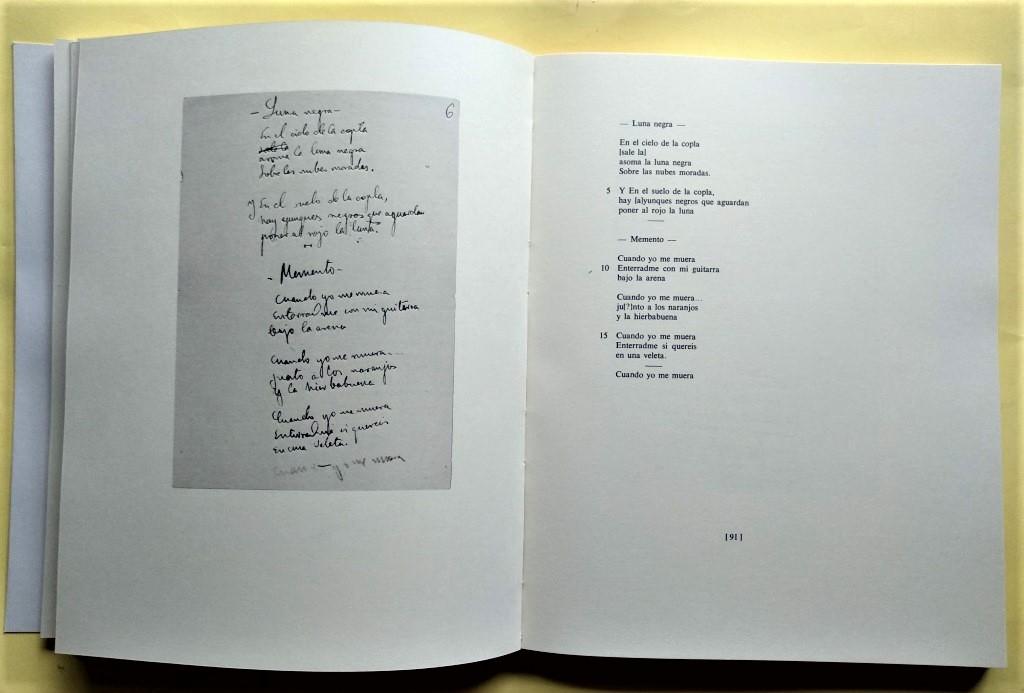 - Luna negra -
6
En el cielo de la copla
sale la
asoma la luna negra
Sobre las nubes moradas.
Y En el suelo de la copla,
hay yunques negros que aguardan
poner al rojo la luna.
- Memento -
Cuando yo me muera
enterradme con mi guitarra
bajo la arena
Cuando yo me muera...
junto a los naranjos
y la hierbabuena
Cuando yo me muera
Enterradme si quereis
en una veleta.
Cuando yo me muera
— Luna negra —
En el cielo de la copla
[sale la]
asoma la luna negra
Sobre las nubes moradas.
5 Y En el suelo de la copla,
hay [a]yunques negros que aguardan
poner al rojo la luna
— Memento —
Cuando yo me muera
10 Enterradme con mi guitarra
bajo la arena
Cuando yo me muera...
ju[?]nto a los naranjos
y la hierbabuena
15 Cuando yo me muera
Enterradme si quereis
en una veleta.
Cuando yo me muera
[91]